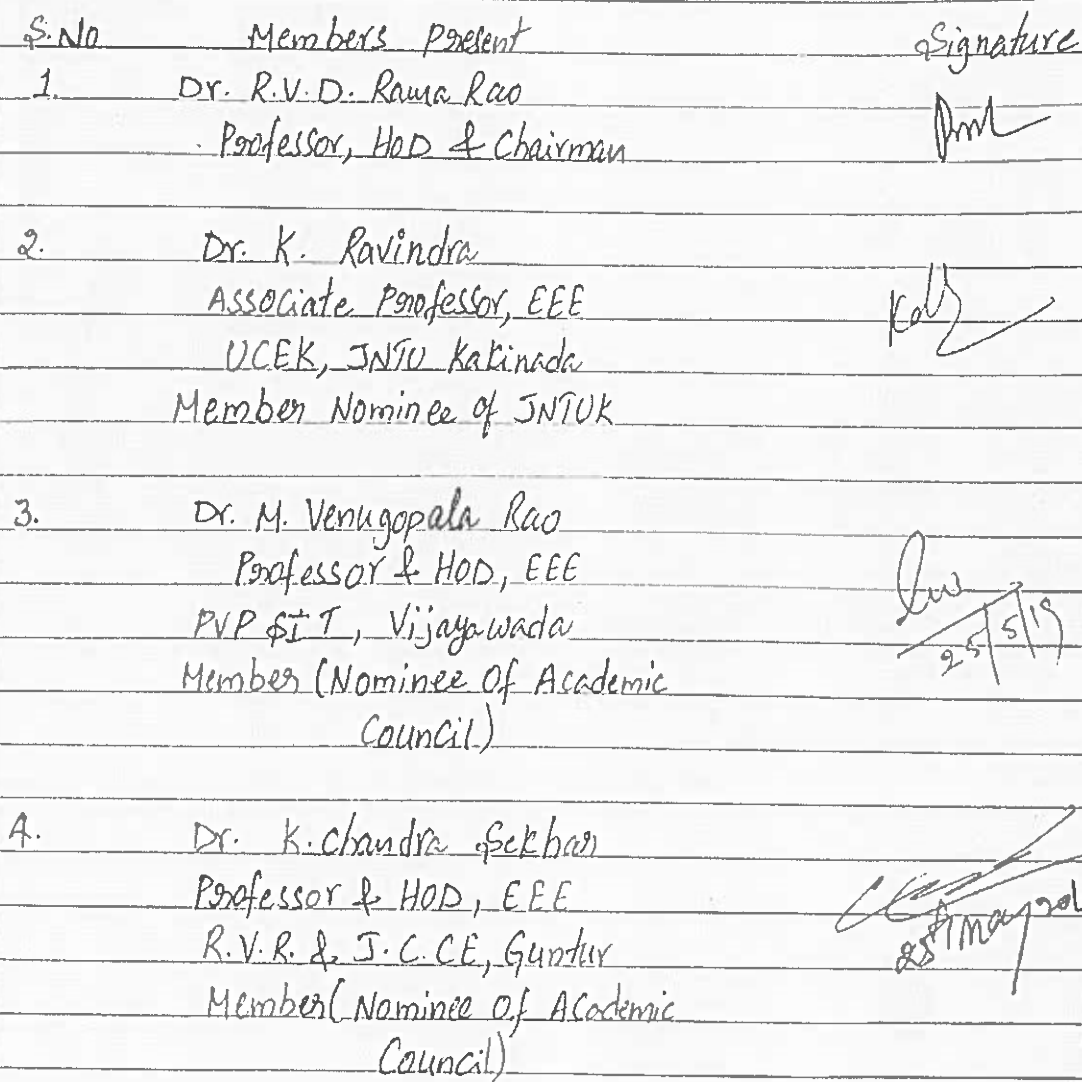 S.No Members Present Signature
1. Dr. R.V.D. Rama Rao
Professor, HOD & Chairman
2. Dr. K. Ravindra
Associate Professor, EEE
UCEK, JNTU Kakinada
Member Nominee of JNTUK
3. Dr. M. Venugopala Rao
Professor & HOD, EEE
PVP SIT, Vijayawada
25/5/19
Member (Nominee Of Academic
Council)
4. Dr. K. Chandra Sekhar
Professor & HOD, EEE
R.V.R. & J.C.CE, Guntur
Member (Nominee Of Academic
Council)